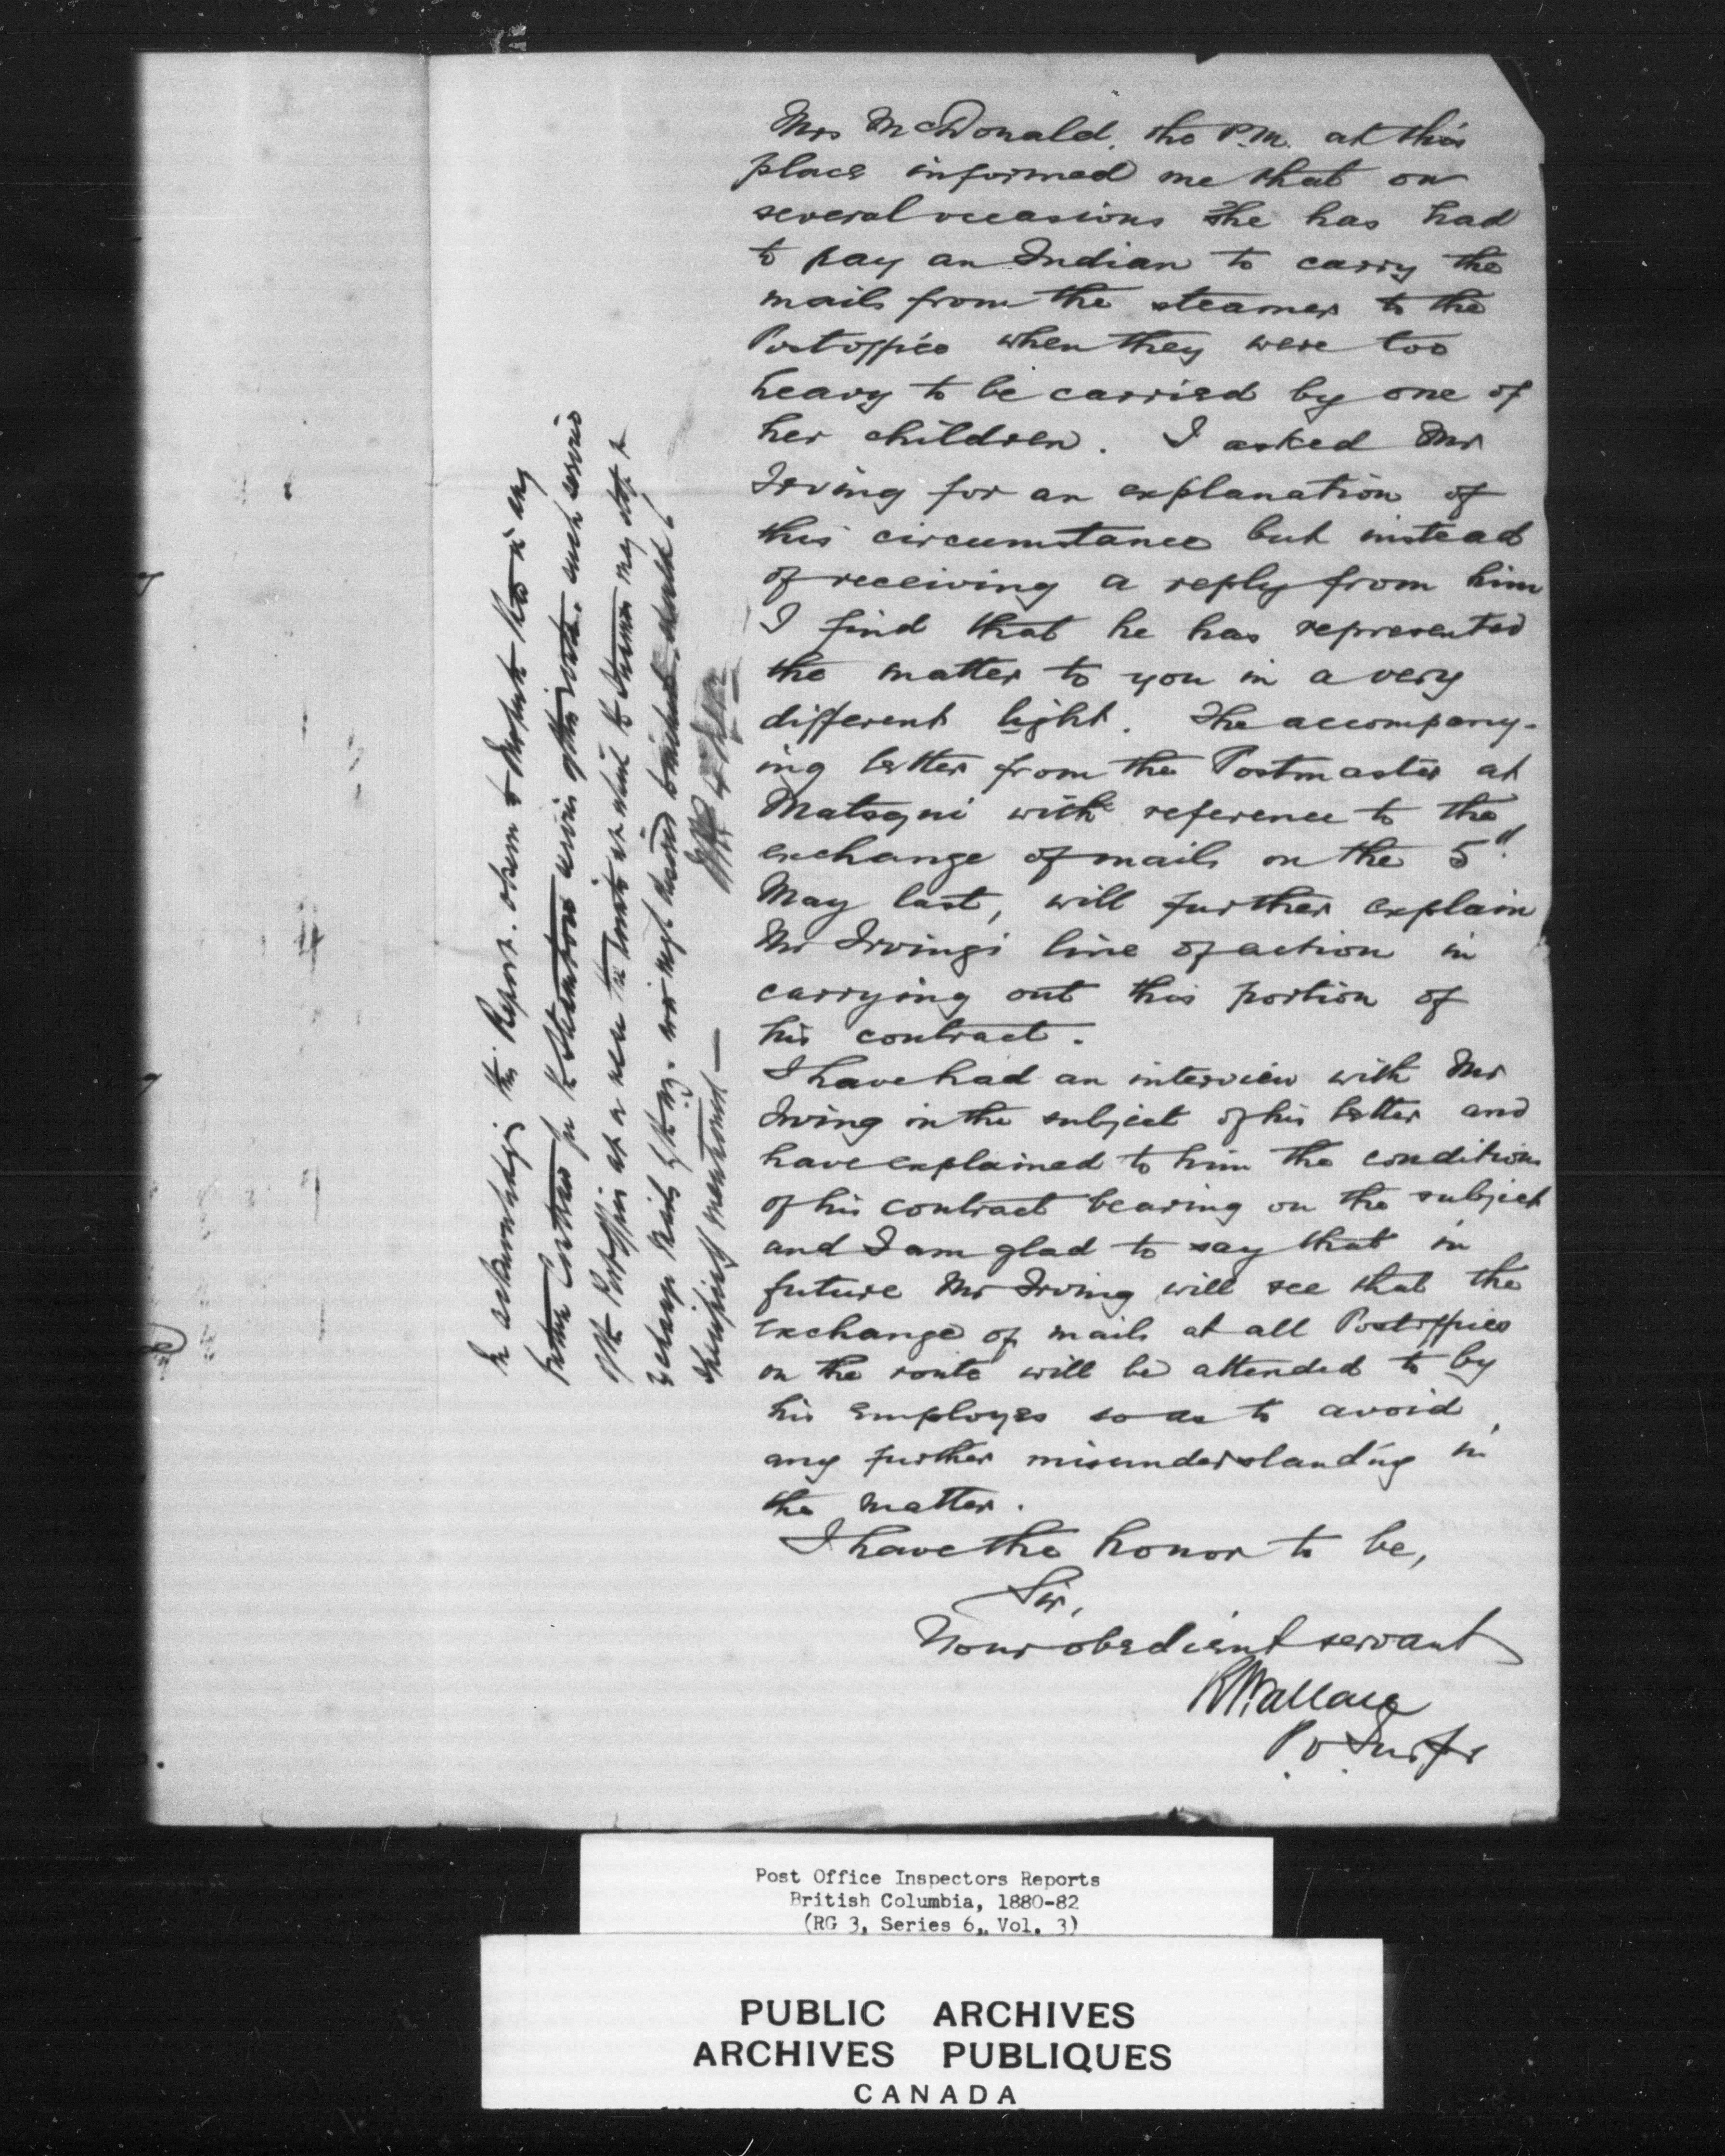 Mrs McDonald, the P.M. at this
place informed me that on
several occasions she has had
to pay an Indian to carry the
mails from the steamer to the
Postoffice when they were too
heavy to be carried by one of
her children. I asked Mr
Irving for an explanation of
this circumstance but instead
of receiving a reply from him
I find that he has represented
the matter to you in a very
different light. The accompany-
ing letter from the Postmaster at
Matsqui with reference to the
exchange of mails on the 5"
May last, will further explain
Mr Irving's line of action in
carrying out this portion of
his contract.
I have had an interview with Mr
Irving on the subject of his letter and
have explained to him the conditions
of his contract bearing on the subject
and I am glad to say that in
future Mr Irving will see that the
exchange of mails at all Postoffices
on the route will be attended to by
his employes so as to avoid
any further misunderstanding in
the matter.
I have the honor to be,
Sir,
Your obedient servant
RWallace
P.O. Insptr
In acknowledging this Report. observe to that in any
future Contract for the service of this route. such
of the Postoffices at or near the to which the may
exchange mails
specifically mentioned —
Post Office Inspectors Reports
British Columbia, 1880-82
(RG 3, Series 6, Vol. 3)
PUBLIC ARCHIVES
ARCHIVES PUBLIQUES
CANADA